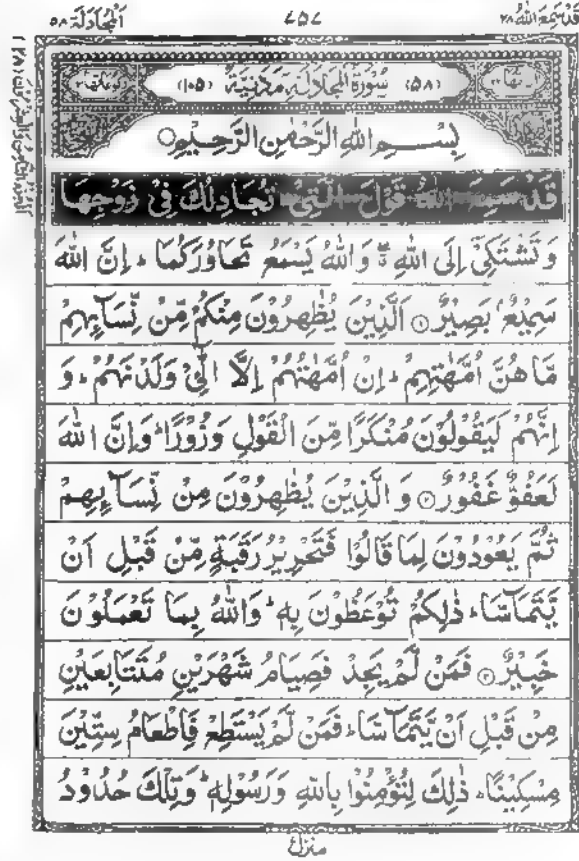 قَدْ سَمِعَ اللّٰهُ ٢٨ ٧٥٧ اَلْمُجَادَلَة ٥٨
(٥٨) سُوْرَةُ الْمُجَادَلَةِ مَدَنِيَّةٌ (١٠٥)
بِسْمِ اللّٰهِ الرَّحْمٰنِ الرَّحِيْمِ
قَدْ سَمِعَ اللّٰهُ قَوْلَ الَّتِيْ تُجَادِلُكَ فِيْ زَوْجِهَا
وَتَشْتَكِيْٓ اِلَى اللّٰهِ ۖ وَاللّٰهُ يَسْمَعُ تَحَاوُرَكُمَا ؕ اِنَّ اللّٰهَ
سَمِيْعٌۢ بَصِيْرٌ ١ اَلَّذِيْنَ يُظٰهِرُوْنَ مِنْكُمْ مِّنْ نِّسَآىِٕهِمْ
مَّا هُنَّ اُمَّهٰتِهِمْ ؕ اِنْ اُمَّهٰتُهُمْ اِلَّا الّٰٓـِٔيْ وَلَدْنَهُمْ ؕ وَ
اِنَّهُمْ لَيَقُوْلُوْنَ مُنْكَرًا مِّنَ الْقَوْلِ وَزُوْرًا ؕ وَاِنَّ اللّٰهَ
لَعَفُوٌّ غَفُوْرٌ ٢ وَالَّذِيْنَ يُظٰهِرُوْنَ مِنْ نِّسَآىِٕهِمْ
ثُمَّ يَعُوْدُوْنَ لِمَا قَالُوْا فَتَحْرِيْرُ رَقَبَةٍ مِّنْ قَبْلِ اَنْ
يَّتَمَآسَّا ؕ ذٰلِكُمْ تُوْعَظُوْنَ بِهٖ ؕ وَاللّٰهُ بِمَا تَعْمَلُوْنَ
خَبِيْرٌ ٣ فَمَنْ لَّمْ يَجِدْ فَصِيَامُ شَهْرَيْنِ مُتَتَابِعَيْنِ
مِنْ قَبْلِ اَنْ يَّتَمَآسَّا ؕ فَمَنْ لَّمْ يَسْتَطِعْ فَاِطْعَامُ سِتِّيْنَ
مِسْكِيْنًا ؕ ذٰلِكَ لِتُؤْمِنُوْا بِاللّٰهِ وَرَسُوْلِهٖ ؕ وَتِلْكَ حُدُوْدُ